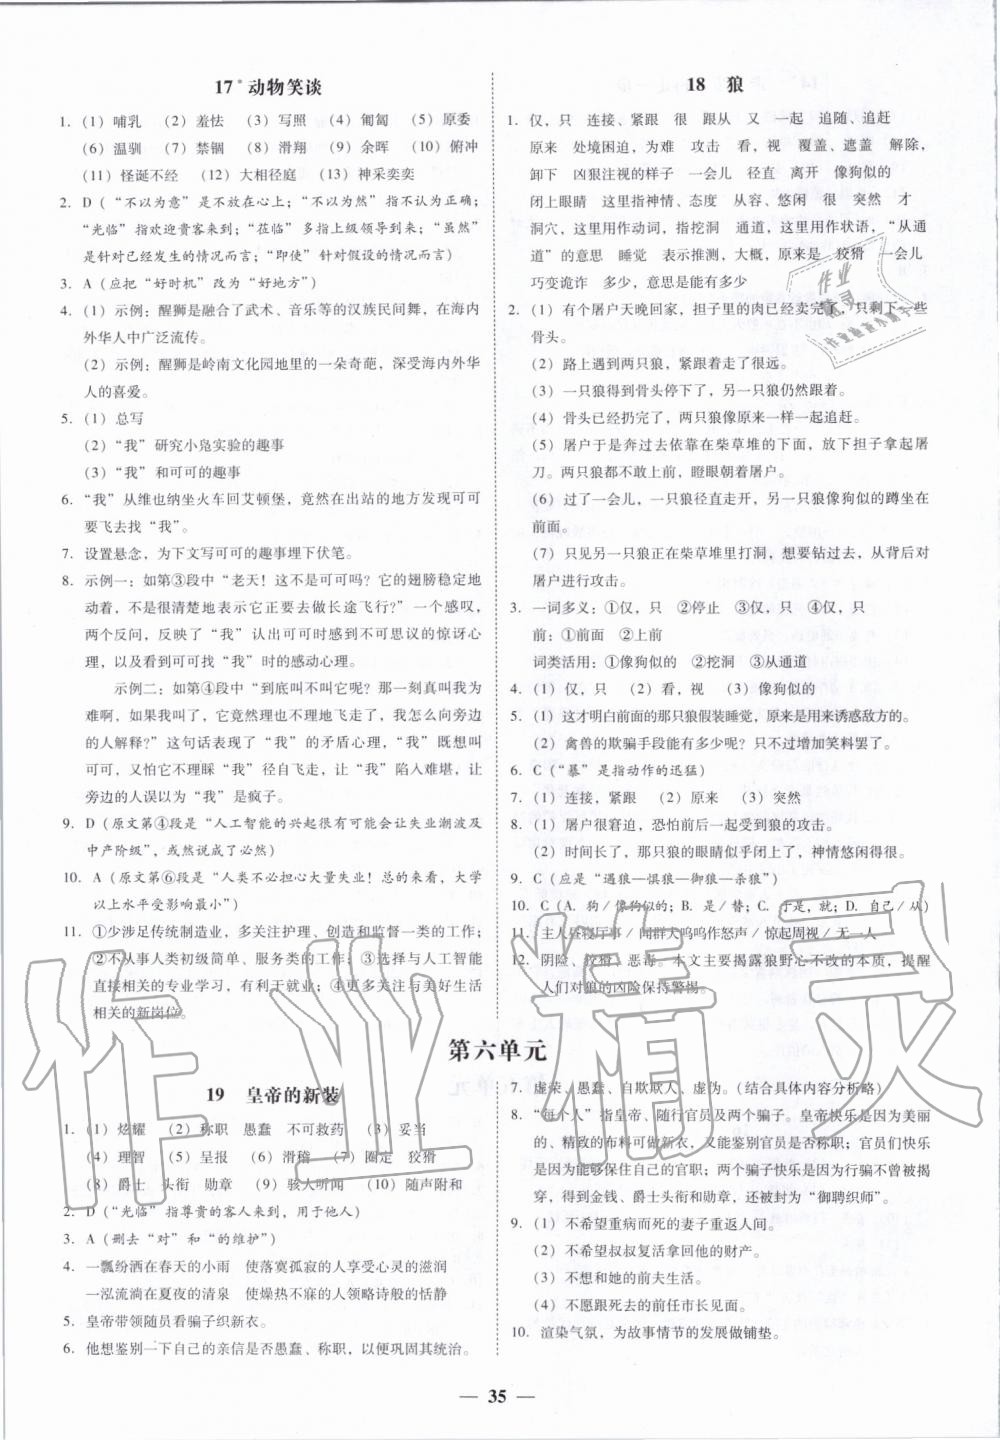 17* 动物笑谈
1. (1) 哺乳 (2) 羞怯 (3) 写照 (4) 匍匐 (5) 原委
(6) 温驯 (7) 禁锢 (8) 滑翔 (9) 余晖 (10) 俯冲
(11) 怪诞不经 (12) 大相径庭 (13) 神采奕奕
2. D（“不以为意”是不放在心上；“不以为然”指不认为正确；
“光临”指欢迎贵客来到；“莅临”多指上级领导到来；“虽然”
是针对已经发生的情况而言；“即使”针对假设的情况而言）
3. A（应把“好时机”改为“好地方”）
4. (1) 示例：醒狮是融合了武术、音乐等的汉族民间舞，在海内
外华人中广泛流传。
(2) 示例：醒狮是岭南文化园地里的一朵奇葩，深受海内外华
人的喜爱。
5. (1) 总写
(2)“我”研究小凫实验的趣事
(3)“我”和可可的趣事
6. “我”从维也纳坐火车回艾顿堡，竟然在出站的地方发现可可
要飞去找“我”。
7. 设置悬念，为下文写可可的趣事埋下伏笔。
8. 示例一：如第③段中“老天！这不是可可吗？它的翅膀稳定地
动着，不是很清楚地表示它正要去做长途飞行？”一个感叹，
两个反问，反映了“我”认出可可时感到不可思议的惊讶心
理，以及看到可可找“我”时的感动心理。
示例二：如第④段中“到底叫不叫它呢？那一刻真叫我为
难啊，如果我叫了，它竟然理也不理地飞走了，我怎么向旁边
的人解释？”这句话表现了“我”的矛盾心理，“我”既想叫
可可，又怕它不理睬“我”径自飞走，让“我”陷入难堪，让
旁边的人误以为“我”是疯子。
9. D（原文第④段是“人工智能的兴起很有可能会让失业潮波及
中产阶级”，或然说成了必然）
10. A（原文第⑥段是“人类不必担心大量失业！总的来看，大学
以上水平受影响最小”）
11. ①少涉足传统制造业，多关注护理、创造和监督一类的工作；
②不从事人类初级简单、服务类的工作；③选择与人工智能
直接相关的专业学习，有利于就业；④更多关注与美好生活
相关的新岗位。
18 狼
1. 仅，只 连接、紧跟 很 跟从 又 一起 追随、追赶
原来 处境困迫，为难 攻击 看，视 覆盖、遮盖 解除，
卸下 凶狠注视的样子 一会儿 径直 离开 像狗似的
闭上眼睛 这里指神情、态度 从容、悠闲 很 突然 才
洞穴，这里用作动词，指挖洞 通道，这里用作状语，“从通
道”的意思 睡觉 表示推测，大概，原来是 狡猾 一会儿
巧变诡诈 多少，意思是能有多少
2. (1) 有个屠户天晚回家，担子里的肉已经卖完了，只剩下一些
骨头。
(2) 路上遇到两只狼，紧跟着走了很远。
(3) 一只狼得到骨头停下了，另一只狼仍然跟着。
(4) 骨头已经扔完了，两只狼像原来一样一起追赶。
(5) 屠户于是奔过去依靠在柴草堆的下面，放下担子拿起屠
刀。两只狼都不敢上前，瞪眼朝着屠户。
(6) 过了一会儿，一只狼径直走开，另一只狼像狗似的蹲坐在
前面。
(7) 只见另一只狼正在柴草堆里打洞，想要钻过去，从背后对
屠户进行攻击。
3. 一词多义：①仅，只 ②停止 ③仅，只 ④仅，只
前：①前面 ②上前
词类活用：①像狗似的 ②挖洞 ③从通道
4. (1) 仅，只 (2) 看，视 (3) 像狗似的
5. (1) 这才明白前面的那只狼假装睡觉，原来是用来诱惑敌方的。
(2) 禽兽的欺骗手段能有多少呢？只不过增加笑料罢了。
6. C（“暴”是指动作的迅猛）
7. (1) 连接，紧跟 (2) 原来 (3) 突然
8. (1) 屠户很窘迫，恐怕前后一起受到狼的攻击。
(2) 时间长了，那只狼的眼睛似乎闭上了，神情悠闲得很。
9. C（应是“遇狼—惧狼—御狼—杀狼”）
10. C（A. 狗／像狗似的；B. 是／替；C. 于是，就；D. 自己／从）
11. 主人昼寝厅事／闻群犬呜呜作怒声／惊起周视／无一人
12. 阴险、狡猾、恶毒。本文主要揭露狼野心不改的本质，提醒
人们对狼的凶险保持警惕。
第六单元
19 皇帝的新装
1. (1) 炫耀 (2) 称职 愚蠢 不可救药 (3) 妥当
(4) 理智 (5) 呈报 (6) 滑稽 (7) 圈定 狡猾
(8) 爵士 头衔 勋章 (9) 骇人听闻 (10) 随声附和
2. D（“光临”指尊贵的客人来到，用于他人）
3. A（删去“对”和“的维护”）
4. 一瓢纷洒在春天的小雨 使落寞孤寂的人享受心灵的滋润
一泓流淌在夏夜的清泉 使燥热不寐的人领略诗般的恬静
5. 皇帝带领随员看骗子织新衣。
6. 他想鉴别一下自己的亲信是否愚蠢、称职，以便巩固其统治。
7. 虚荣、愚蠢、自欺欺人、虚伪。（结合具体内容分析略）
8. “每个人”指皇帝、随行官员及两个骗子。皇帝快乐是因为美丽
的、精致的布料可做新衣，又能鉴别官员是否称职；官员们快乐
是因为能够保住自己的官职；两个骗子快乐是因为行骗不曾被揭
穿，得到金钱、爵士头衔和勋章，还被封为“御聘织师”。
9. (1) 不希望重病而死的妻子重返人间。
(2) 不希望叔叔复活拿回他的财产。
(3) 不想和她的前夫生活。
(4) 不愿跟死去的前任市长见面。
10. 渲染气氛，为故事情节的发展做铺垫。
— 35 —
作业精灵
作业
精灵